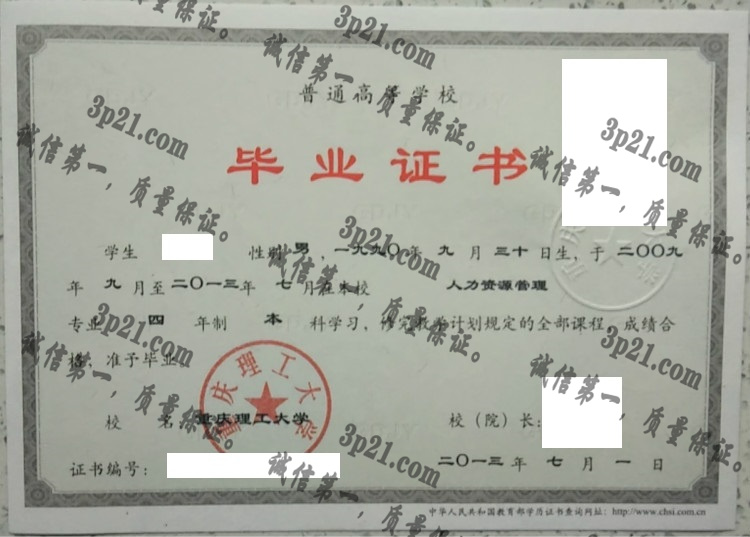 普通高等学校
毕业证书
学生 性别 男 ，一九九〇年 九 月 三十 日生，于 二〇〇九
年 九 月至 二〇一三年 七 月在本校 人力资源管理
专业 四 年制 本 科学习，修完教学计划规定的全部课程，成绩合
格，准予毕业。
重庆理工大学
校 名：重庆理工大学 校（院）长：
证书编号： 二〇一三 年 七 月 一 日
中华人民共和国教育部学历证书查询网址：http://www.chsi.com.cn
3p21.com
诚信第一，质量保证。
3p21.com
诚信第一，质量保证。
3p21.com
诚信第一，质量保证。
3p21.com
诚信第一，质量保证。
3p21.com
诚信第一，质量保证。
3p21.com
诚信第一，质量保证。
3p21.com
诚信第一，质量保证。
3p21.com
诚信第一，质量保证。